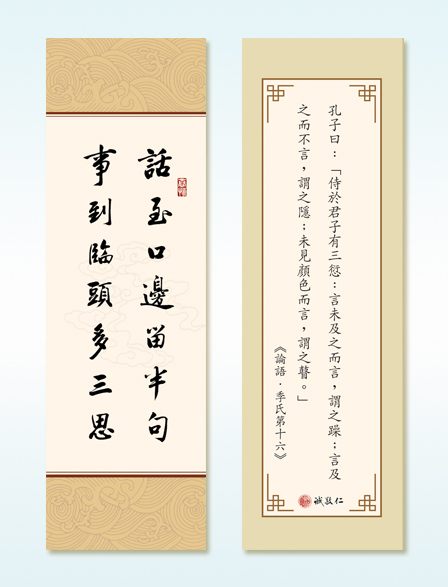 話至口邊留半句
事到臨頭多三思
孔子曰：「侍於君子有三愆：言未及之而言，謂之躁；言及
之而不言，謂之隱；未見顏色而言，謂之瞽。」
《論語．季氏第十六》
誠敬仁